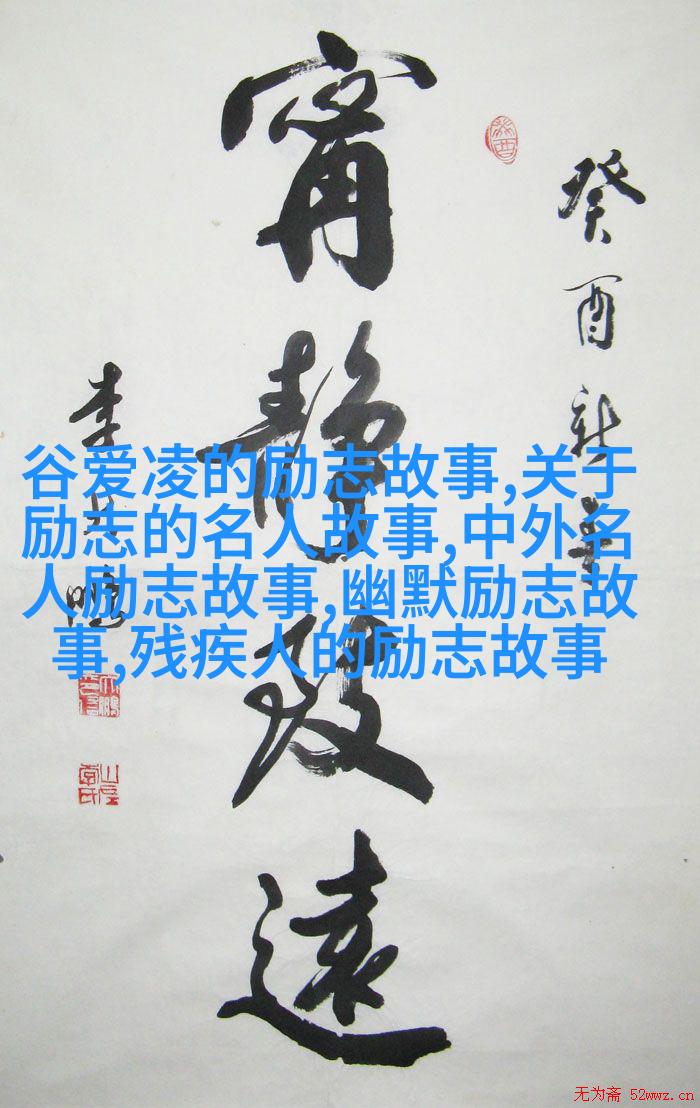 癸酉新
甯靜致遠
李
谷爱凌的励志故事,关于
励志的名人故事,中外名
人励志故事,幽默励志故
事,残疾人的励志故事
无为斋 52wwz.cn